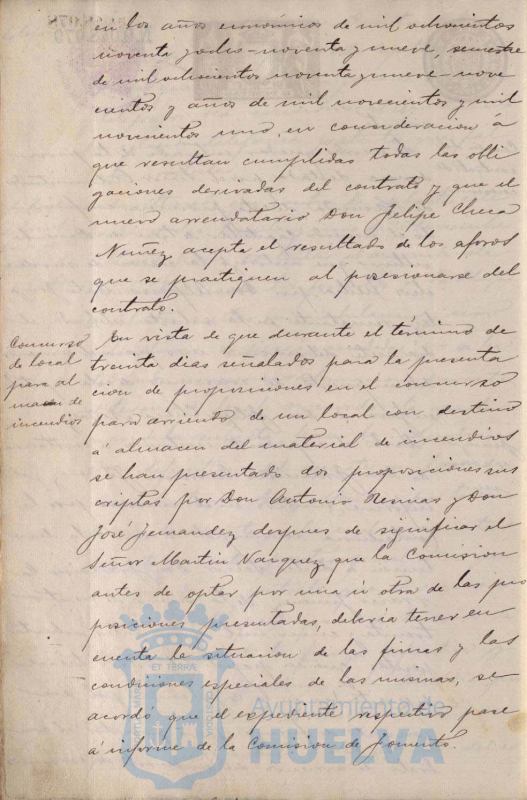 en los años económicos de mil ochocientos
noventa y ocho - noventa y nueve, semestre
de mil ochocientos noventa y nueve - nove
cientos y años de mil novecientos y mil
novecientos uno, en consideracion á
que resultan cumplidas todas las obli
gaciones derivadas del contrato y que el
nuevo arrendatario Don Felipe Checa
Nuñez acepta el resultado de los aforos
que se practiquen al posesionarse del
contrato.
Concurso
de local
para al
macen de
incendios
En vista de que durante el término de
treinta dias señalados para la presenta
cion de proposiciones en el concurso
para arriento de un local con destino
á almacen del material de incendios
se han presentado dos proposiciones sus
criptas por Don Antonio Resinas y Don
José Fernandez despues de significar el
Señor Martin Vazquez que la Comision
antes de optar por una ú otra de las pro
posiciones presentadas, deberia tener en
cuenta la situacion de las fincas y las
condiciones especiales de las mismas, se
acordó que el expediente respectivo pase
á informe de la Comision de Fomento.
ET TERRA
Ayuntamiento de
HUELVA